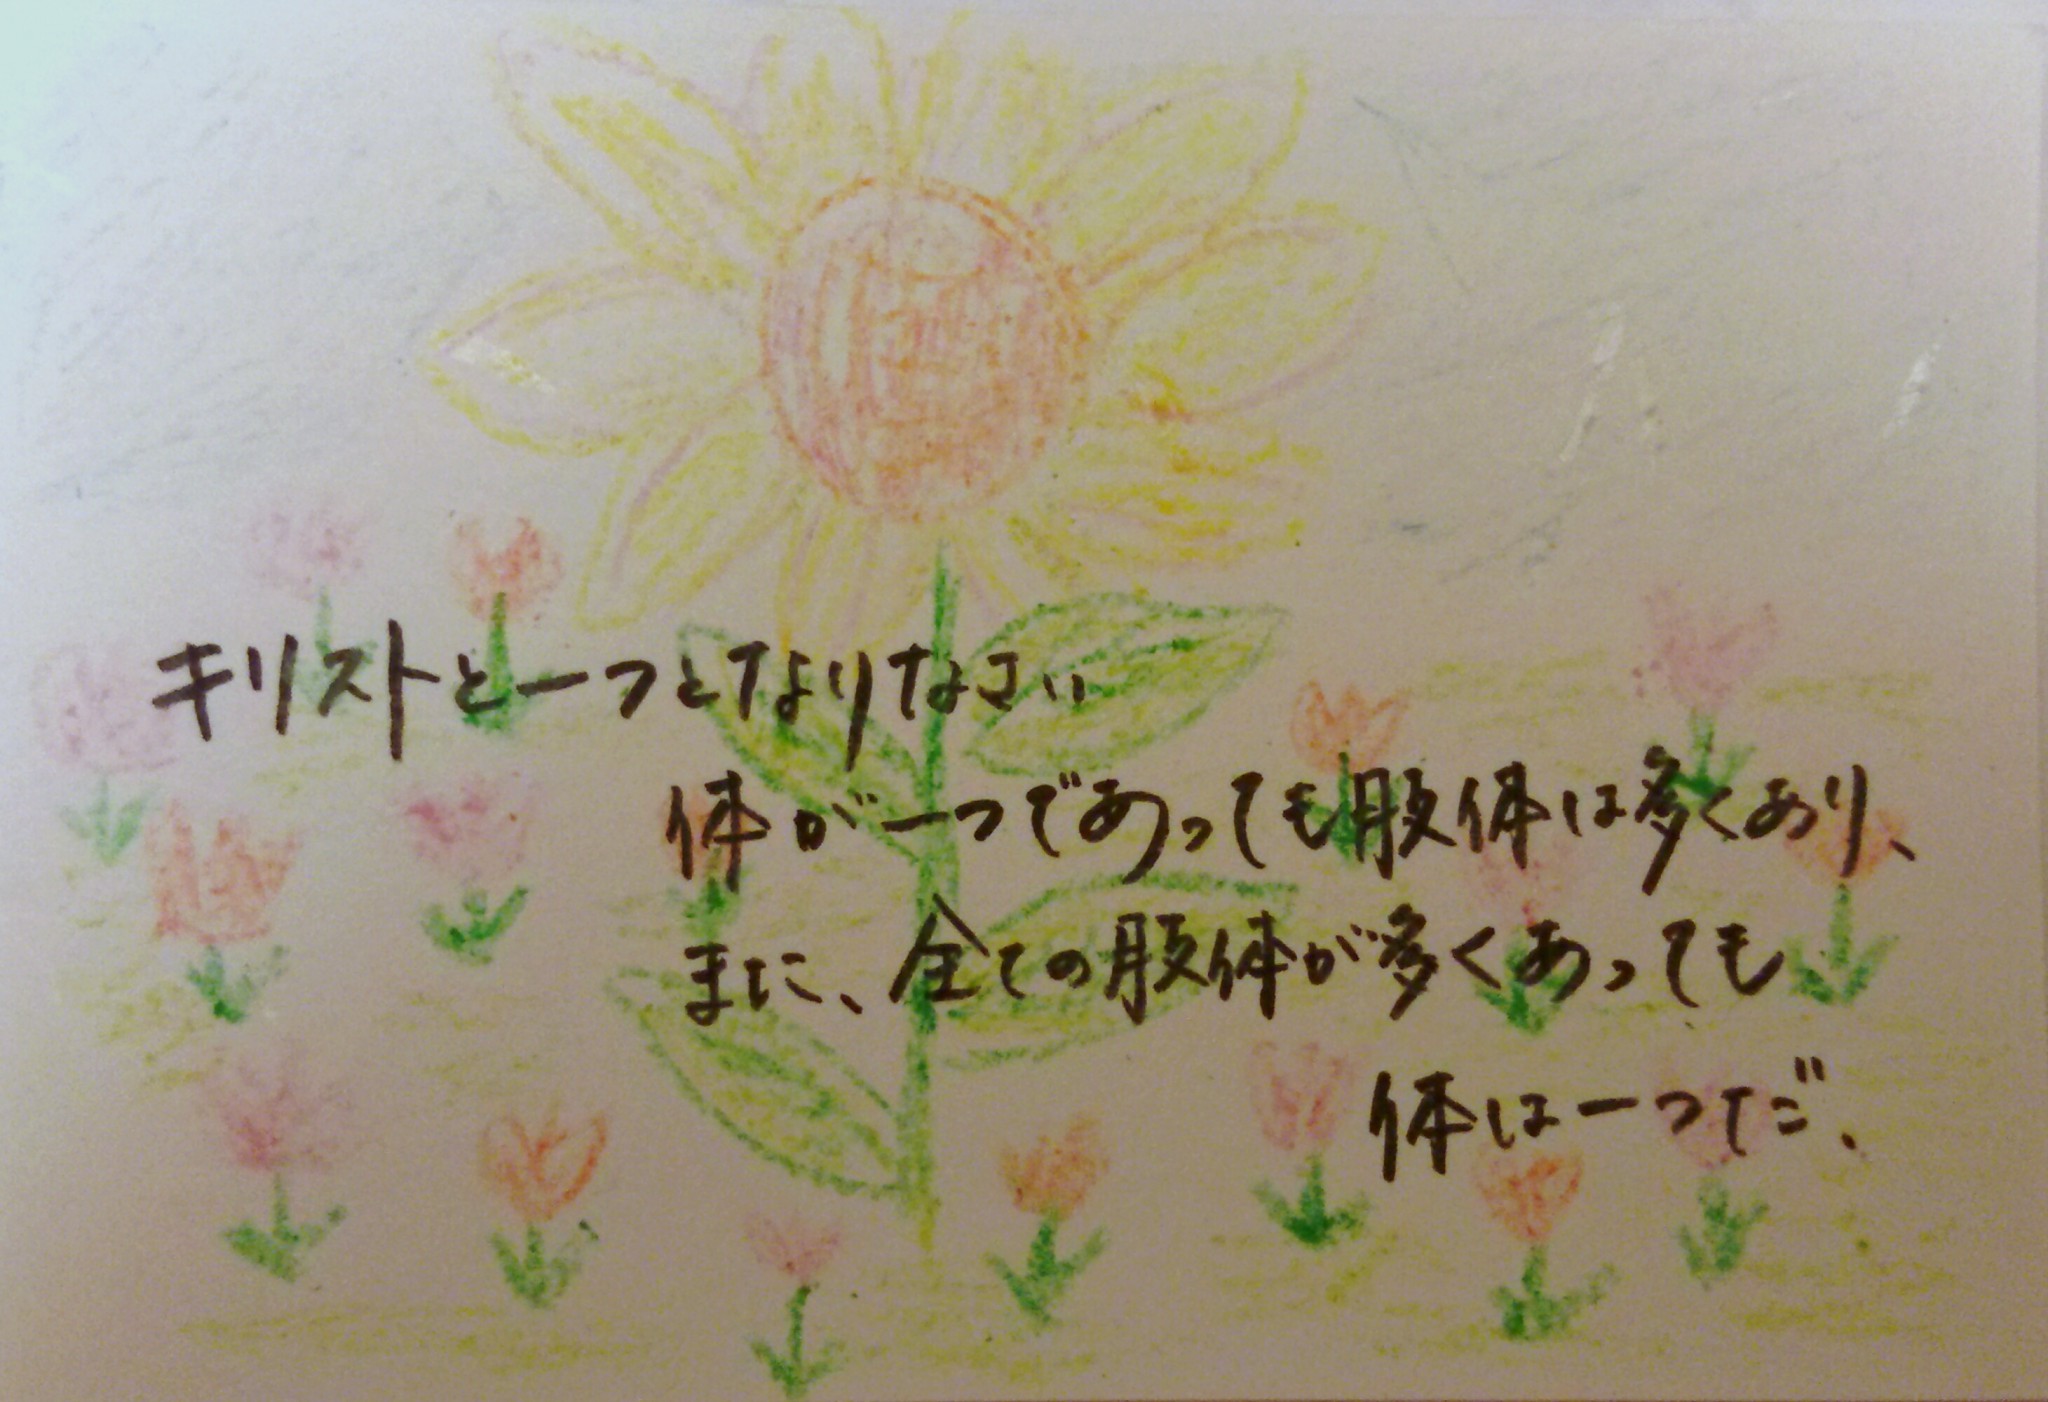 キリストと一つとなりなさい
体が一つであっても肢体は多くあり、
また、全ての肢体が多くあっても
体は一つだ、